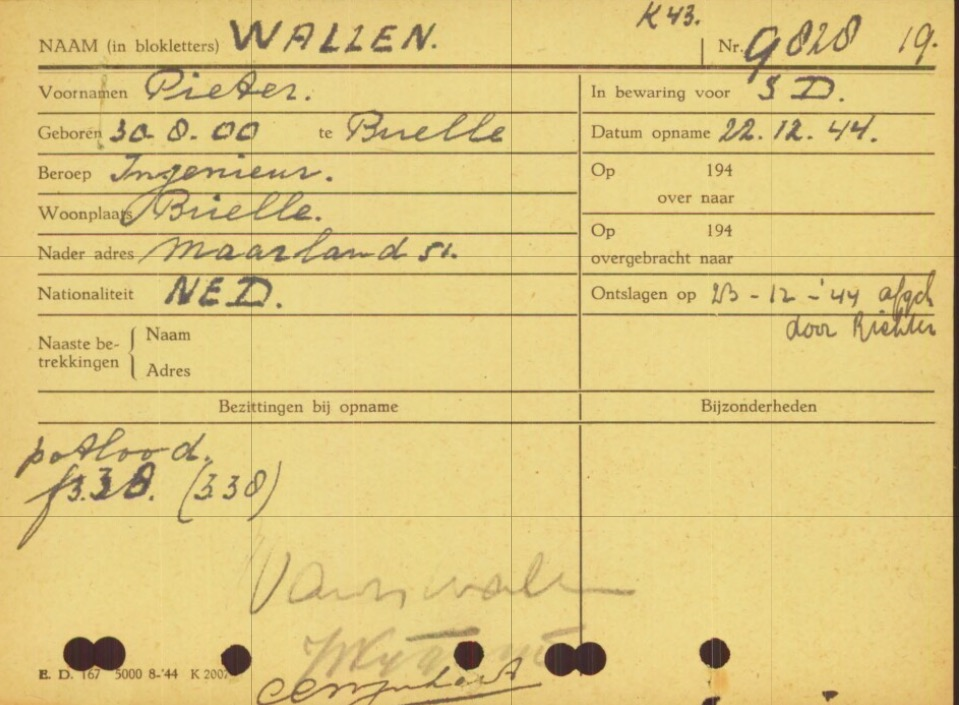 K 43.
NAAM (in blokletters) WALLEN. Nr. 9828 19.
Voornamen Pieter. In bewaring voor S D.
Geboren 30.8.00 te Brielle Datum opname 22.12.44.
Beroep Ingenieur. Op 194
over naar
Woonplaats Brielle. Op 194
Nader adres Maarland 51. overgebracht naar
Nationaliteit NED. Ontslagen op 23-12-'44 afgeh
door Richter
Naaste be-
trekkingen
Naam
Adres
Bezittingen bij opname Bijzonderheden
potlood.
f3.38. (3.38)
E. D. 167 5000 8-'44 K 2007